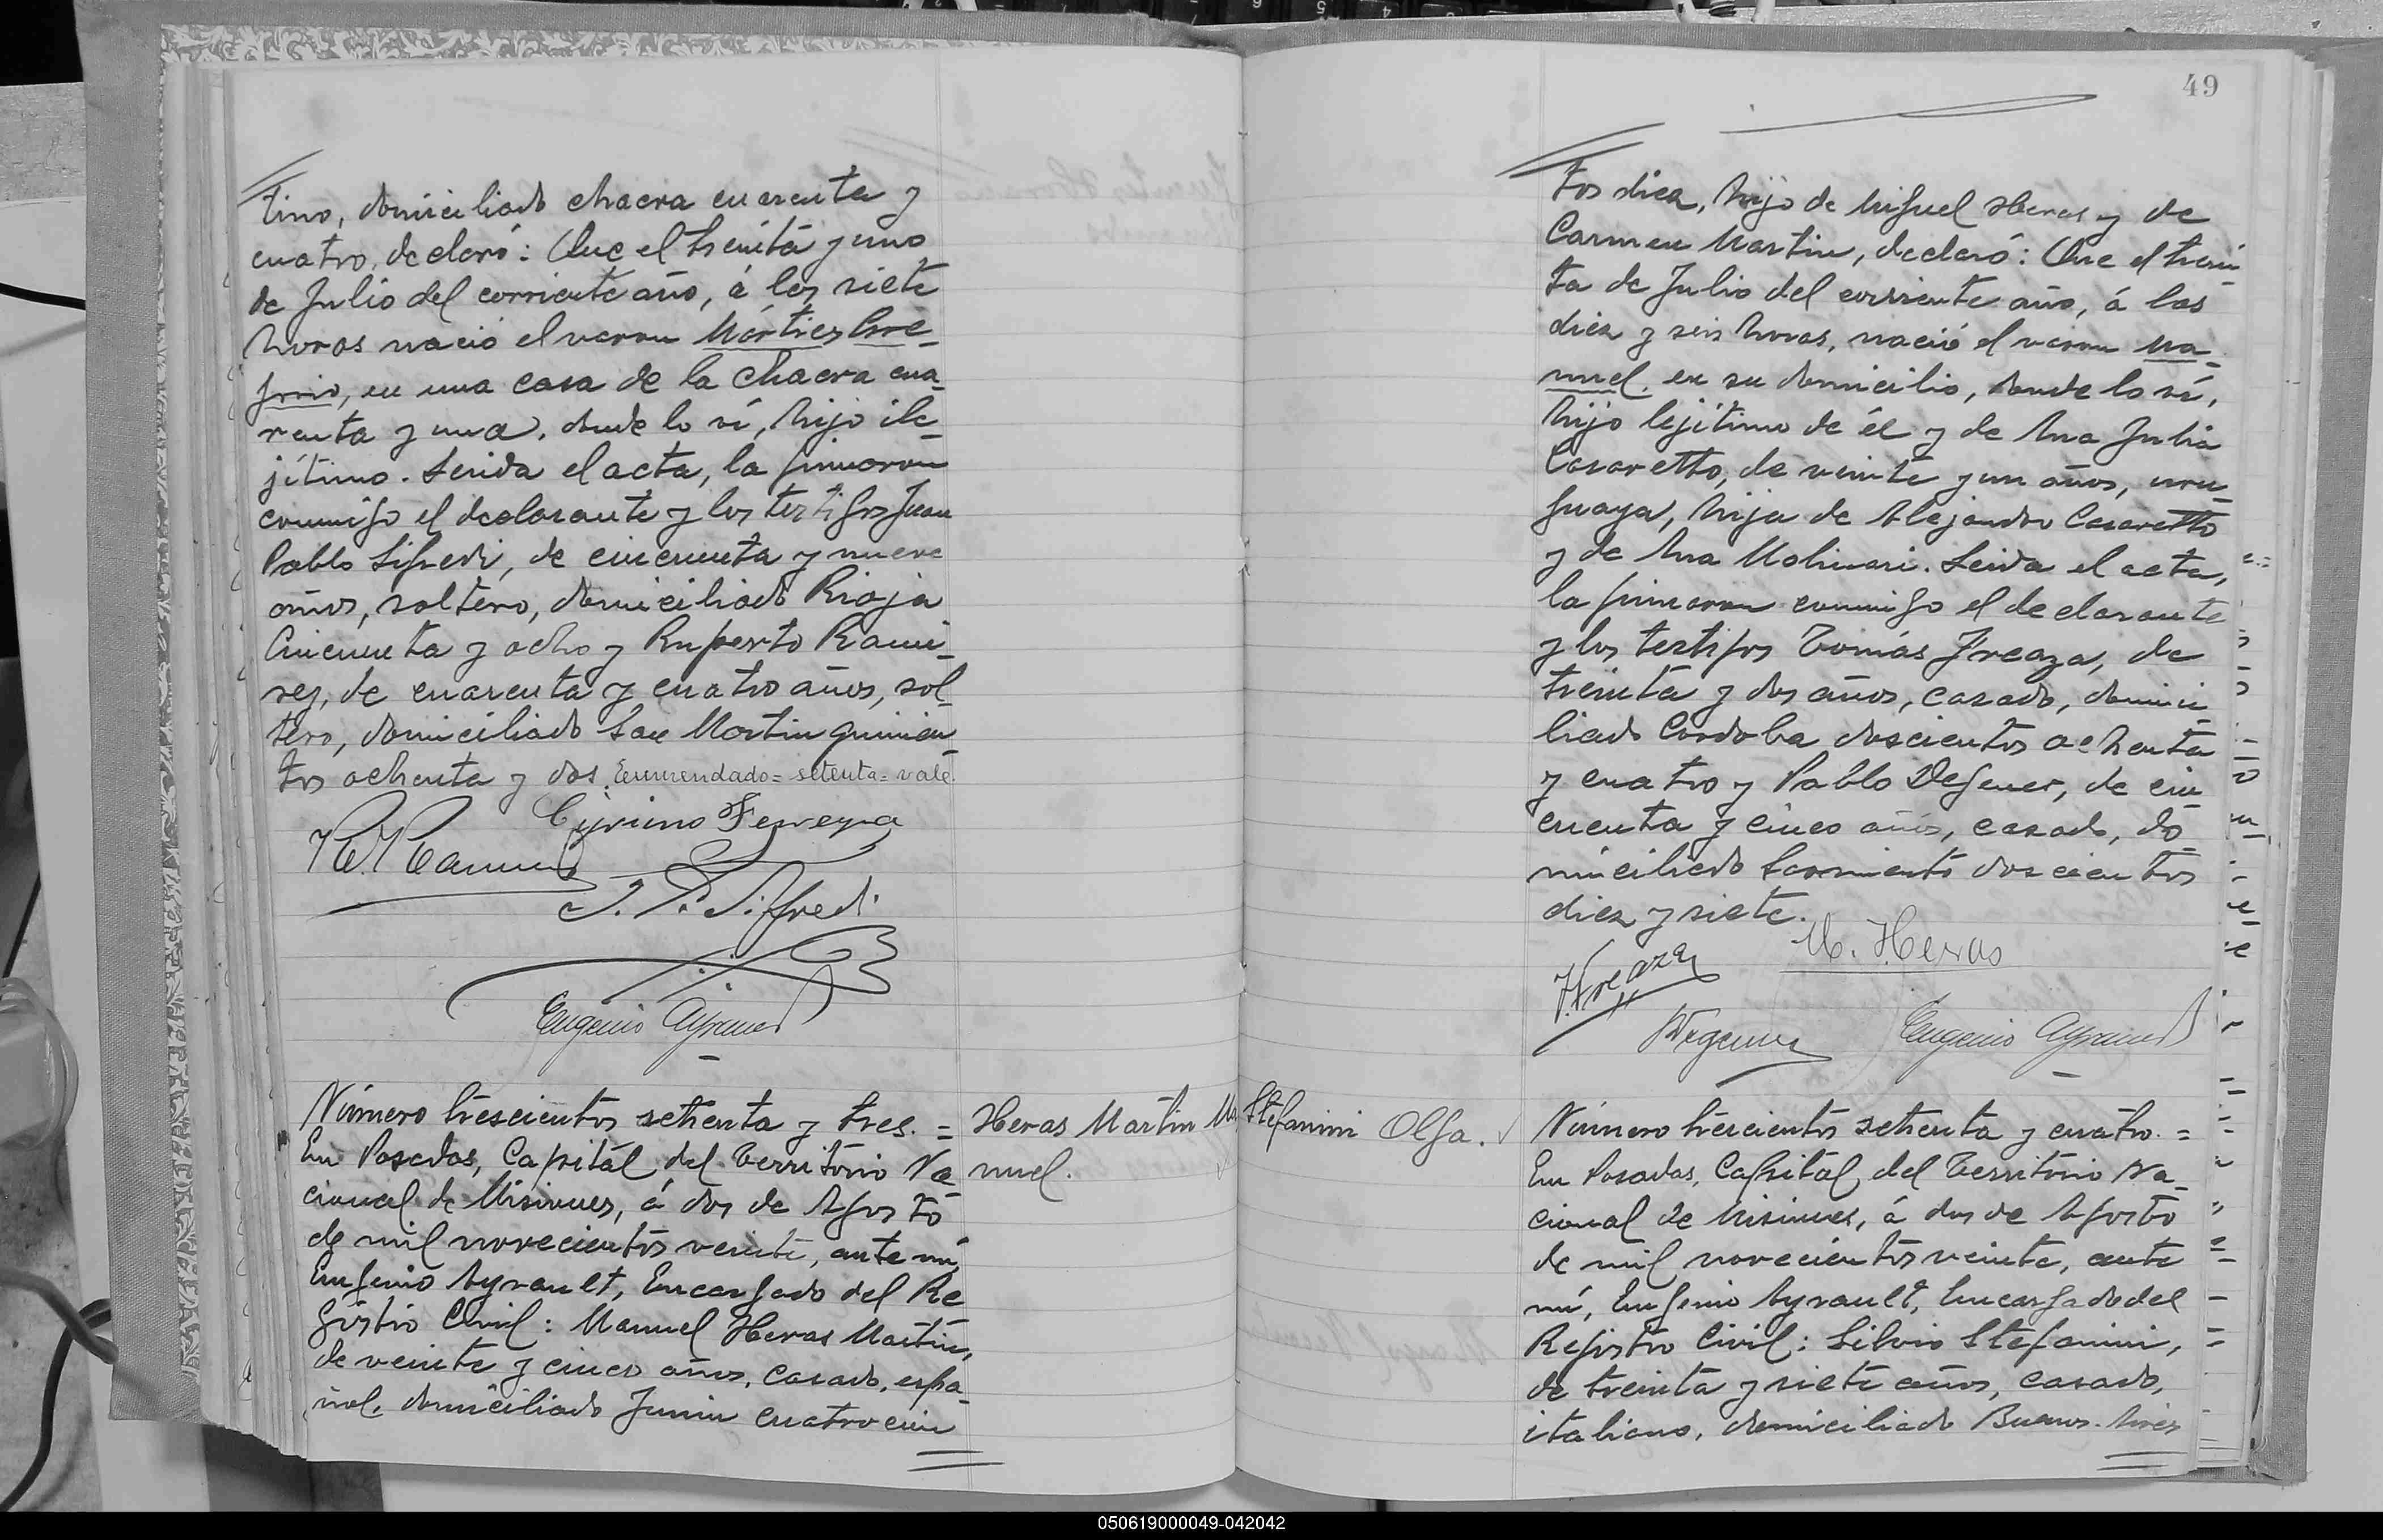 tino, domiciliado chacra cuarenta y
cuatro, declaró: Que el treinta y uno
de Julio del corriente año, á las siete
horas nació el varon Mártires Gre-
gorio, en una casa de la chacra cua-
renta y una, donde lo ví, hijo ile-
jítimo. Leida el acta, la firmaron
conmigo el declarante y los testigos Juan
Pablo Sifredi, de cincuenta y nueve
años, soltero, domiciliado Rioja
Cincuenta y ocho y Ruperto Rami-
rez, de cuarenta y cuatro años, sol-
tero, domiciliado San Martin quinien-
tos ochenta y dos. Enmendado = setenta = vale.
Cipriano Ferreyra
J. P. Sifredi
Eugenio Ayrault
Número trescientos setenta y tres. =
En Posadas, Capital del Territorio Na-
cional de Misiones, á dos de Agosto
de mil novecientos veinte, ante mí,
Eugenio Ayrault, Encargado del Re-
gistro Civil: Manuel Heras Martin,
de veinte y cinco años, casado, espa-
ñol, domiciliado Junin cuatrocien
Heras Martin Ma
nuel.
49
tos diez, hijo de Miguel Heras y de
Carmen Martin, declaró: Que el trein-
ta de Julio del corriente año, á las
diez y seis horas, nació el varon Ma-
nuel, en su domicilio, donde lo ví,
hijo lejítimo de él y de Ana Julia
Casaretto, de veinte y un años, uru-
guaya, hija de Alejandro Casaretto
y de Ana Molinari. Leida el acta,
la firmaron conmigo el declarante
y los testigos Tomás Freaza, de
treinta y dos años, casado, domici-
liado Córdoba doscientos ochenta
y cuatro y Pablo Degener, de cin
cuenta y cinco años, casado, do-
miciliado Sarmiento doscientos
diez y siete.
M. Heras
T. Freaza
Degener
Eugenio Ayrault
Stefanini Olga.
Número trescientos setenta y cuatro. =
En Posadas, Capital del Territorio Na-
cional de Misiones, á dos de Agosto
de mil novecientos veinte, ante
mí, Eugenio Ayrault, Encargado del
Registro Civil: Silvio Stefanini,
de treinta y siete años, casado,
italiano, domiciliado Buenos Aires
050619000049-042042